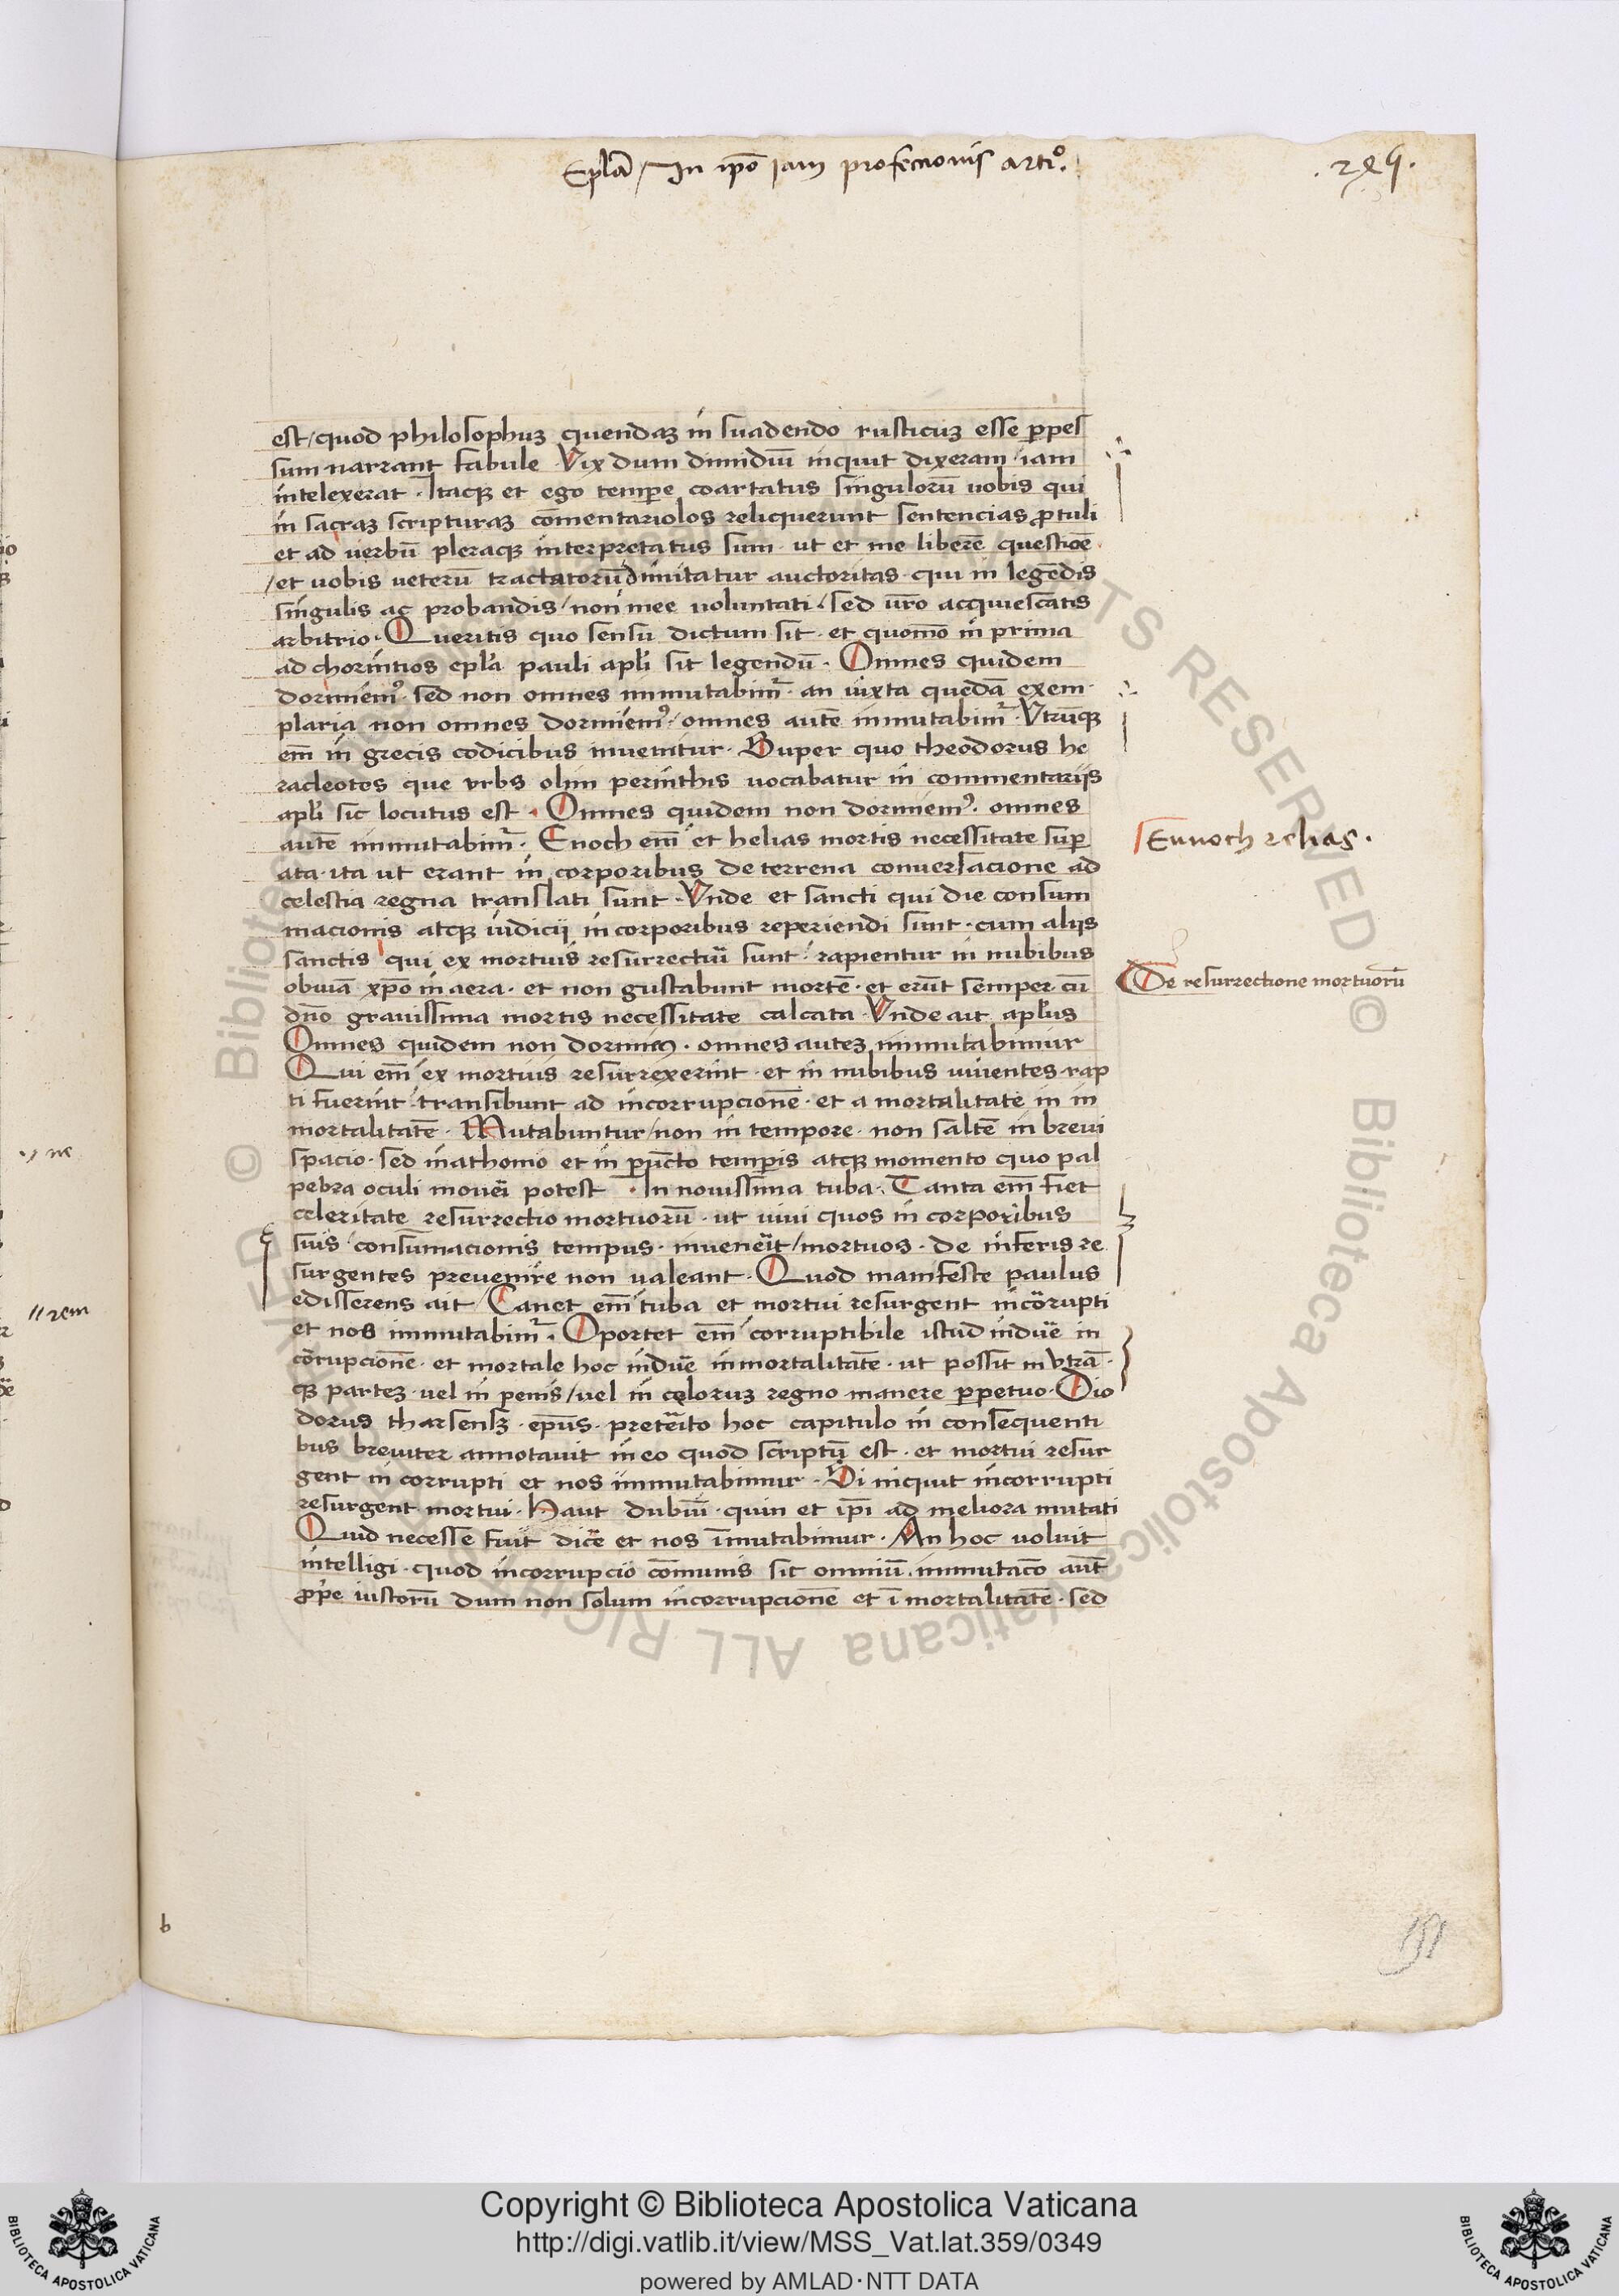 Epl̄a / In ip̄o iam profeccionis artio.
est / quod philosophuʒ quendaʒ in suadendo rusticuʒ esse p̱pes
sum narrant fabule Vix dum dimidiū inquit dixeram / iam
intelexerat · Itacqꝫ et ego temp̱e coartatus singulorū uobis qui
in sacraʒ scripturaʒ cōmentariolos reliquerunt sentencias ꝓtuli
et ad uerbū pleraqꝫ interpretatus sum · ut et me liberē questioē
/ et uobis ueterū tractatorū dimitatur auctoritas · qui in legēdis
singulis ac probandis / non mee voluntati / sed ur̄o acquiescatis
arbitrio · Queritis quo sensu dictum sit · et quomō in prima
ad chorintios epl̄a pauli apl̄i sit legendū · Omnes quidem
dormiemꝰ · sed non omnes immutabimr̄ · an iuxta quedā exem
plaria non omnes dormiemꝰ / omnes autē inmutabimr̄ · Vtrūqꝫ
em̄ in grecis codicibus inuenitur · Super quo theodorus he
racleotes que vrbs olim perinthis vocabatur in commentariis
apl̄i sic locutus est · Omnes quidem non dormiemꝰ · omnes
autē immutabimr̄ · Enoch em̄ et helias mortis necessitate sup̱
ata · ita ut erant in corporibus de terrena conuersacione ad
celestia regna translati sunt · Vnde et sancti qui die consum
macionis atqꝫ iudicii in corporibus reperiendi sunt · cum aliis
sanctis qui ex mortuis resurrecturi sunt · rapientur in nubibus
obuiā xp̄o in aera · et non gustabunt mortē · et erūt semper cū
dn̄o grauissima mortis necessitate calcata · Vnde ait apl̄us
Omnes quidem non dormiemꝰ · omnes auteʒ immutabimur
Qui em̄ ex mortuis resurrexerint · et in nubibus uiuentes · rap
ti fuerint transibunt ad incorrupcionē · et a mortalitate in in
mortalitatē · Mutabuntur / non in tempore · non saltē in breui
spacio · sed in athomo et in pūcto temp̱is atqꝫ momento quo pal
pebra oculi moueri potest · In nouissima tuba · Tanta em̄ fiet
celeritate resurrectio mortuorū · ut uiui quos in corporibus
suis consumacionis tempus · inuenerit / mortuos · de inferis re
surgentes preuenire non ualeant · Quod manifeste paulus
edisserens ait / Canet em̄ tuba et mortui resurgent incōrupti
et nos immutabimr̄ · Oportet em̄ corruptibile istud induē in
cōrupcionē · et mortale hoc induē inmortalitatē · ut possit in vtrā
qꝫ parteʒ · vel in penis / vel in celoruʒ regno manere p̱petuo · Dio
dorus tharsensʒ · ep̄us · preterito hoc capitulo in consequenti
bus breuiter annotauit in eo quod scriptū est · et mortui resur
gent in corrupti et nos immutabimur · Si inquit incorrupti
resurgent mortui · Haut dubiū · quin et ip̄i ad meliora mutati
Quid necesse fuit dicē et nos īmutabimur · An hoc voluit
intelligi · quod incorrupcio cōmunis sit omniū · immutacō aut̄
ꝓp̱e iustorū dum non solum incorrupcionē et ī mortalitatē · sed
Ennoch ⁊ elias ·
De resurrectione mortuorū
·, ne
// rem
b
© Biblioteca Apostolica Vaticana ALL RIGHTS RESERVED
Copyright © Biblioteca Apostolica Vaticana
http://digi.vatlib.it/view/MSS_Vat.lat.359/0349
powered by AMLAD·NTT DATA
BIBLIOTECA APOSTOLICA VATICANA
BIBLIOTECA APOSTOLICA VATICANA